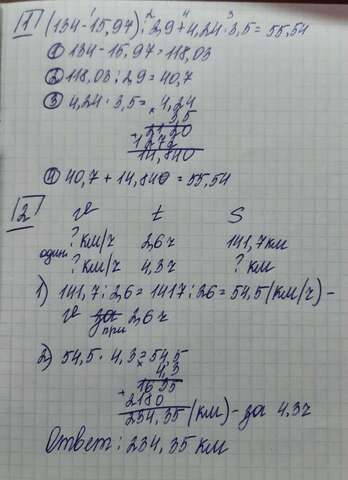 1 (134-15,97):2,9+4,24·3,5=55,54
1 134-15,97=118,03
2 118,03:2,9=40,7
3 4,24·3,5= 4,24
× 3,5
2120
+1272
14,840
4 40,7+14,840=55,54
2 v t S
? км/ч 2,6ч 141,7км
один.
? км/ч 4,3ч ? км
1) 141,7:2,6=1417:26=54,5(км/ч)-
v при 2,6ч
2) 54,5·4,3=54,5
× 4,3
1635
+2180
234,35(км)-за 4,3ч
Ответ: 234,35 км